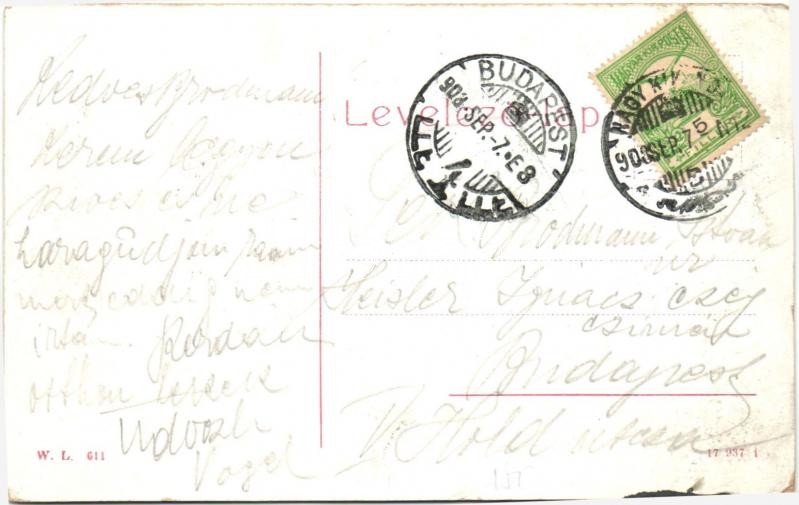 Kedves Brodmann
Kérem legyen
szíves és ne
haragudjon reám
még eddig nem
irtam. Kordán
otthon leszek
Üdvözli
Vogel
W. L. 611
Levelező-lap
BUDAPEST
908 SEP. 7. E8
NAGY KIKINDA
908 SEP. 7
Brodmann István
úr
Heisler Ignácz czég
czimén
Budapest
V Hold utcza
17 937 1